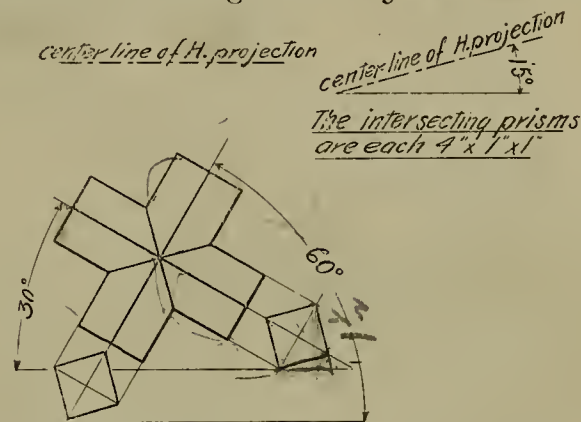 center line of H. projection
center line of H. projection
15°
The intersecting prisms
are each 4"x 1"x1"
60°
30°